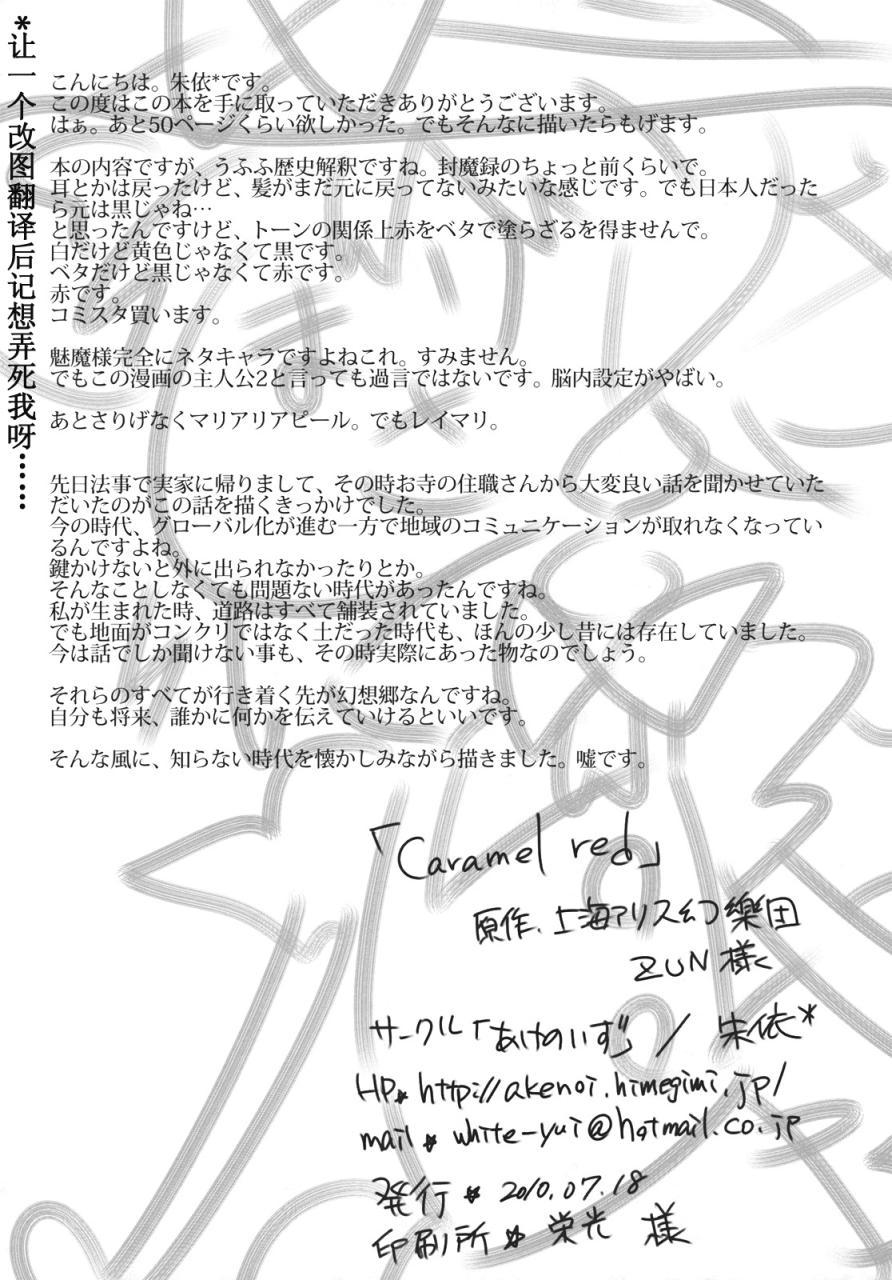 *让一个改图翻译后记想弄死我呀……
こんにちは。朱依*です。
この度はこの本を手に取っていただきありがとうございます。
はぁ。あと50ページくらい欲しかった。でもそんなに描いたらもげます。
本の内容ですが、うふふ歴史解釈ですね。封魔録のちょっと前くらいで。
耳とかは戻ったけど、髪がまだ元に戻ってないみたいな感じです。でも日本人だった
ら元は黒じゃね…
と思ったんですけど、トーンの関係上赤をベタで塗らざるを得ませんで。
白だけど黄色じゃなくて黒です。
ベタだけど黒じゃなくて赤です。
赤です。
コミスタ買います。
魅魔様完全にネタキャラですよねこれ。すみません。
でもこの漫画の主人公2と言っても過言ではないです。脳内設定がやばい。
あとさりげなくマリアリアピール。でもレイマリ。
先日法事で実家に帰りまして、その時お寺の住職さんから大変良い話を聞かせていた
だいたのがこの話を描くきっかけでした。
今の時代、グローバル化が進む一方で地域のコミュニケーションが取れなくなってい
るんですよね。
鍵かけないと外に出られなかったりとか。
そんなことしなくても問題ない時代があったんですね。
私が生まれた時、道路はすべて舗装されていました。
でも地面がコンクリではなく土だった時代も、ほんの少し昔には存在していました。
今は話でしか聞けない事も、その時実際にあった物なのでしょう。
それらのすべてが行き着く先が幻想郷なんですね。
自分も将来、誰かに何かを伝えていけるといいです。
そんな風に、知らない時代を懐かしみながら描きました。嘘です。
「Caramel red」
原作、上海アリス幻樂団
ZUN様
サークル「あけのいず」/ 朱依*
HP★http://akenoi.himegimi.jp/
mail★white-yui@hotmail.co.jp
発行★2010.07.18
印刷所★栄光 様